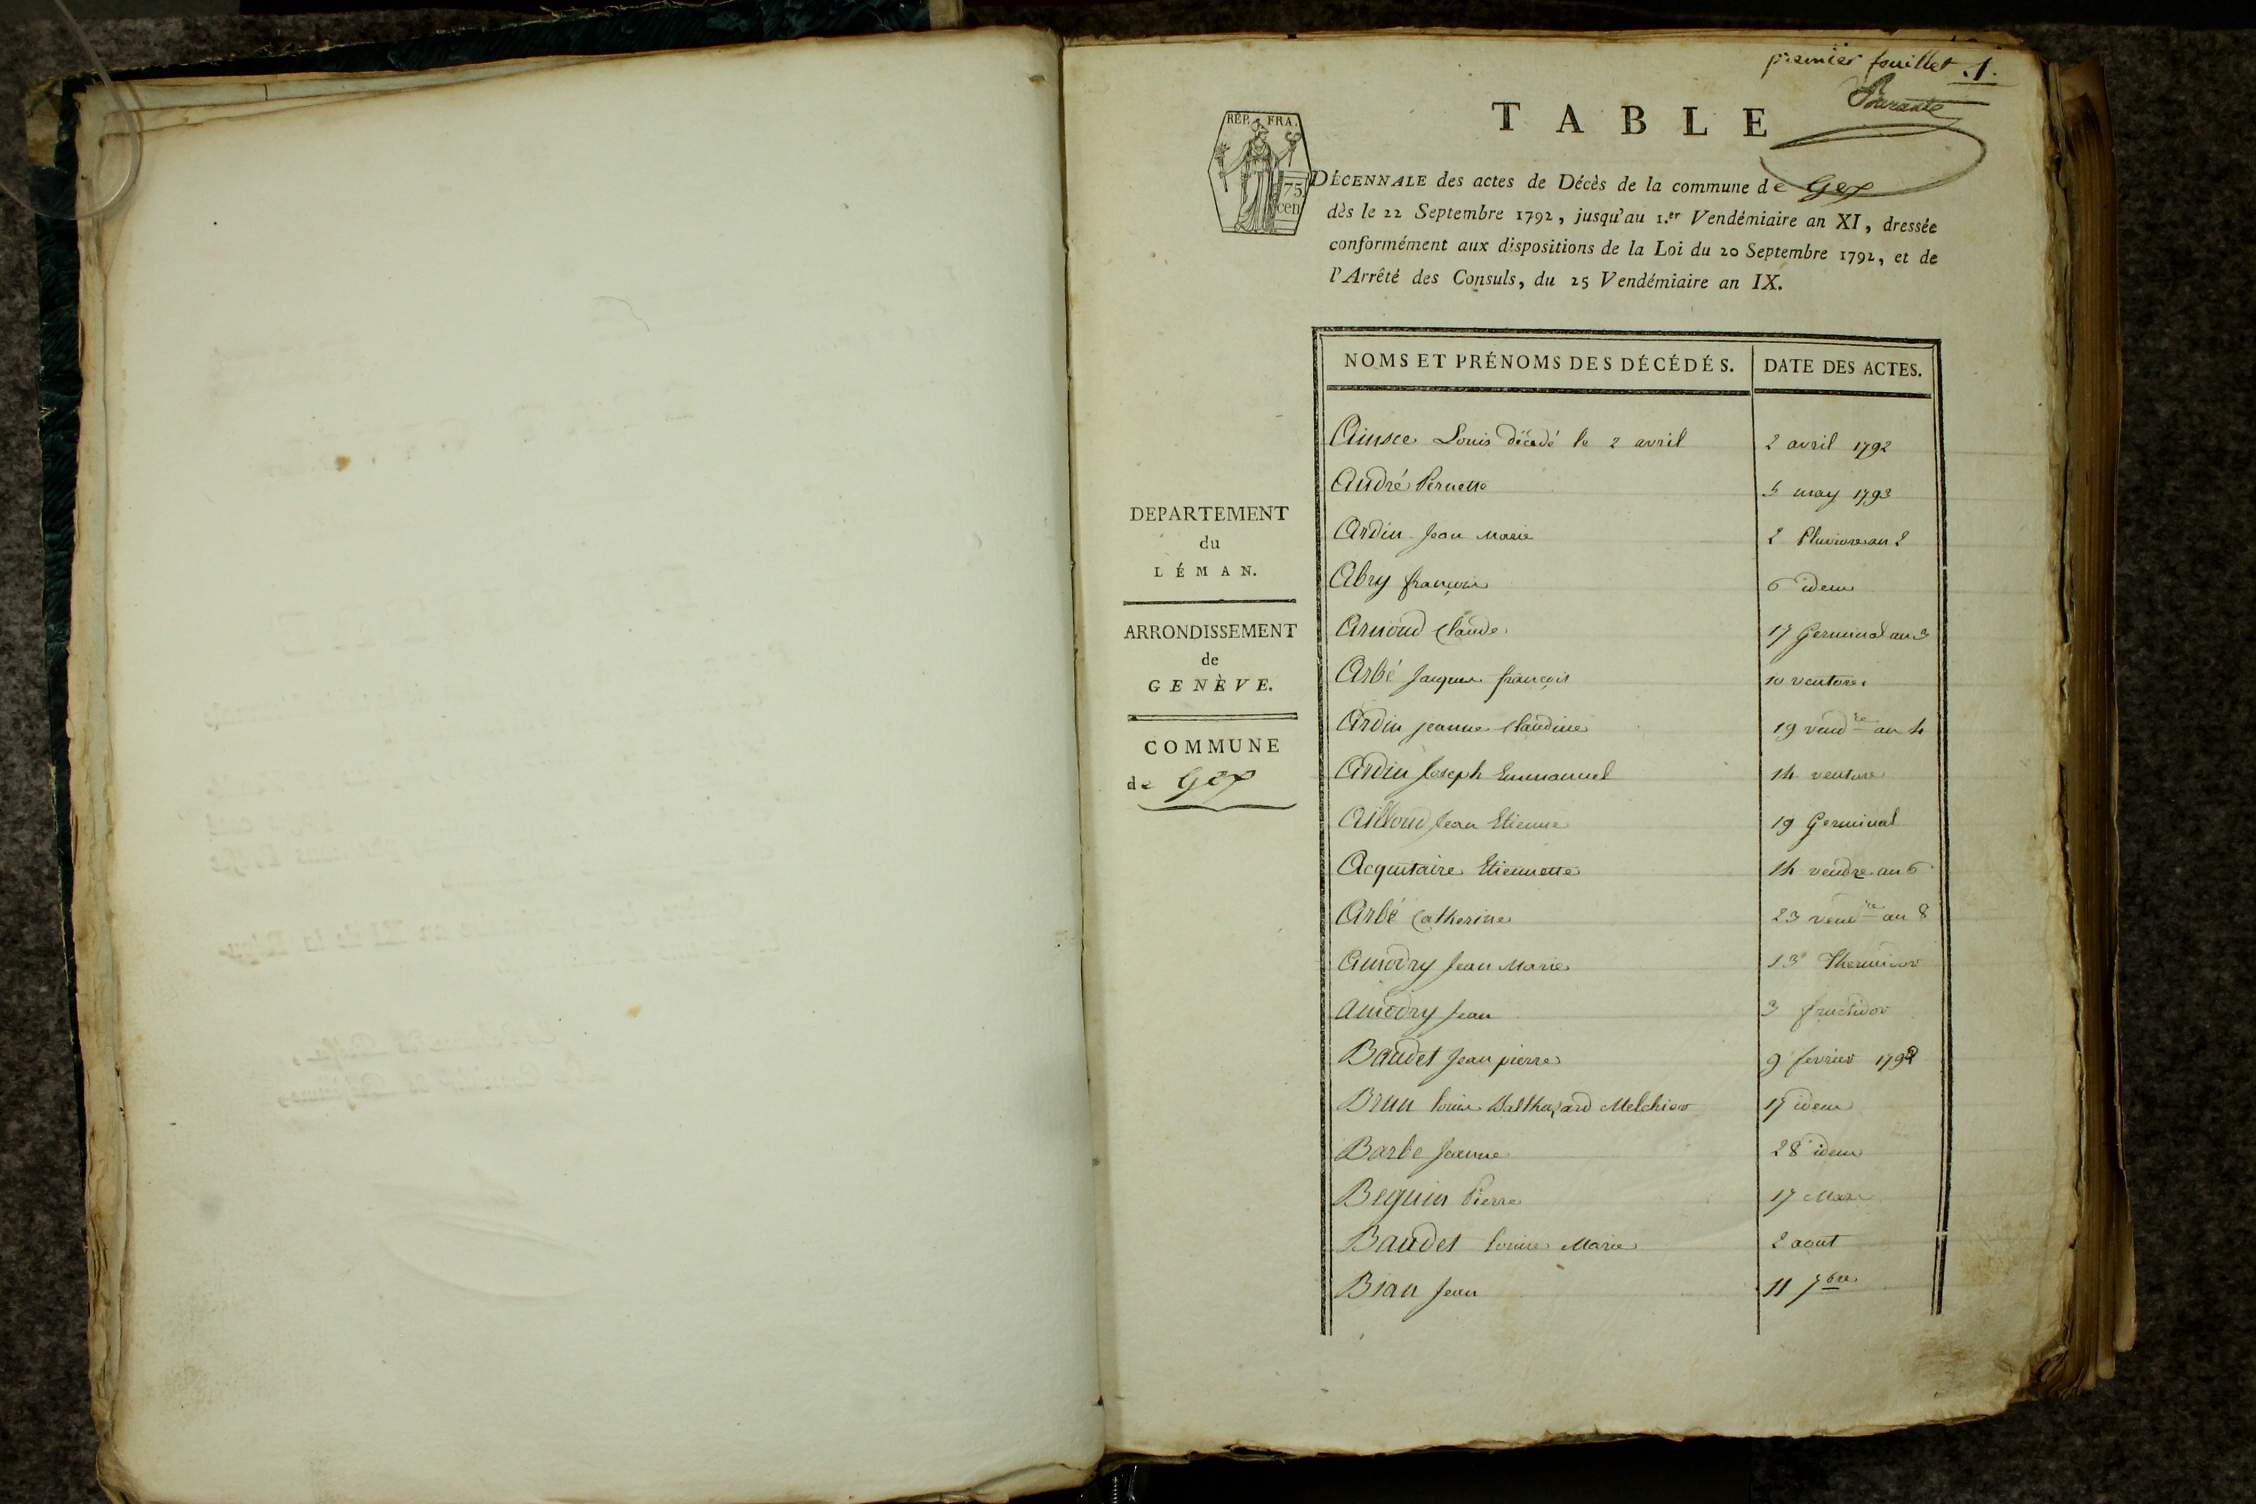 premier feuillet .1.
TABLE
RÉP. FRA.
75
cen
DÉCENNALE des actes de Décès de la commune de Gex
dès le 22 Septembre 1792, jusqu'au 1.er Vendémiaire an XI, dressée
conformément aux dispositions de la Loi du 20 Septembre 1792, et de
l'Arrêté des Consuls, du 25 Vendémiaire an IX.
DEPARTEMENT
du
LÉMAN.
ARRONDISSEMENT
de
GENÈVE.
COMMUNE
de Gex
NOMS ET PRÉNOMS DES DÉCÉDÉS. DATE DES ACTES.
Louis décédé le 2 avril 2 avril 1792
André Pernette 5 may 1793
Ardin Jean Marie 2 Pluviose an 2
Abry françois 6 idem
Arnoud Claude 17 Germinal an 3
Arbé Jacques françois 10 ventose.
Ardin jeanne Claudine 19 vend.re an 4
Ardin Joseph Emmanuel 14 ventose
Ailloud Jean Etienne 19 Germinal
Acquitaire Etiennette 14 vendre an 6
Arbé Catherine 23 vend.re an 8
Amodry Jean Marie 13 Thermidor
amodry Jean 3 fructidor
Baudet Jean pierre 9 fevrier
Brun louis Balthazard Melchior 17 idem
Barbe Jeanne 28 idem
Beguin Pierre 17 Mars
Baudet louise Marie 2 aout
Jean 11 7bre